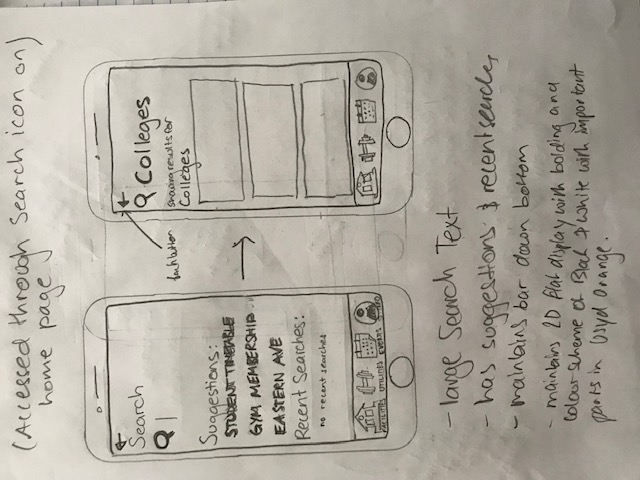 (Accessed through Search icon on)
home page
Search
Suggestions:
STUDENT TIMETABLE
GYM MEMBERSHIP
EASTERN AVE
Recent Searches:
no recent searches
FACILITIES UTILITIES EVENTS
back button
Colleges
showing results for
Colleges
- large Search Text
- has suggestions & recent searches
- maintains bar down bottom
- maintains 2D flat display with bolding and
colour scheme of Black & White with important
parts in Usyd Orange.